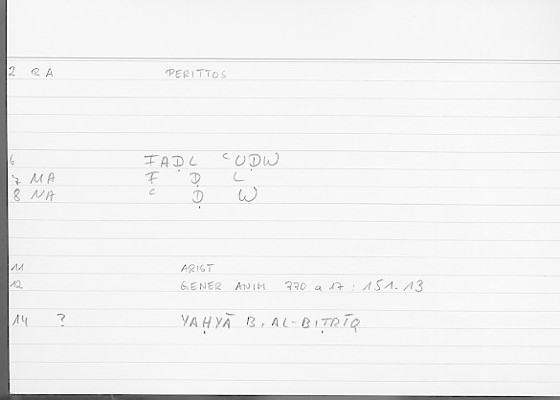 2 RA PERITTOS
6 FAḌL ʿUḌW
7 MA F Ḍ L
8 NA ʿ Ḍ W
11 ARIST
12 GENER ANIM 770 a 17 : 151.13
14 ? YAḤYĀ B. AL-BIṬRĪQ